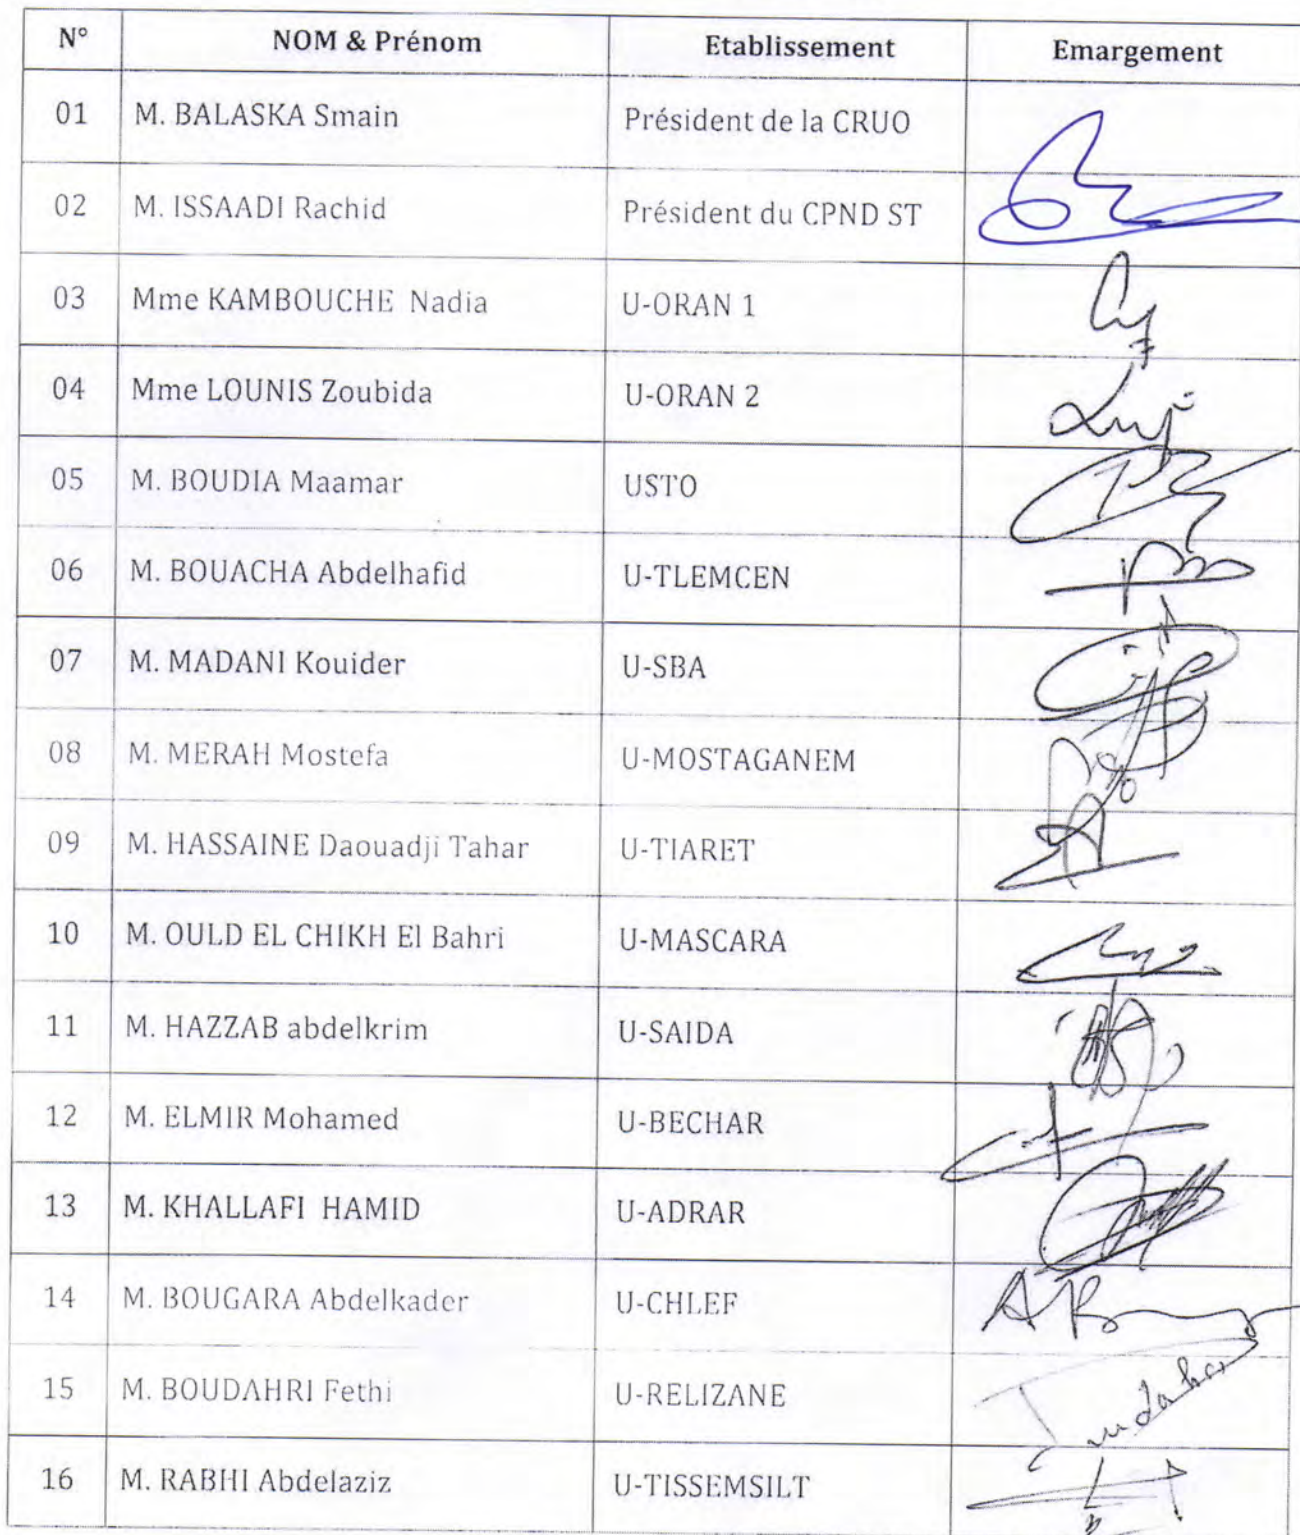 N° NOM & Prénom Etablissement Emargement
01 M. BALASKA Smain Président de la CRUO
02 M. ISSAADI Rachid Président du CPND ST
03 Mme KAMBOUCHE Nadia U-ORAN 1
04 Mme LOUNIS Zoubida U-ORAN 2
05 M. BOUDIA Maamar USTO
06 M. BOUACHA Abdelhafid U-TLEMCEN
07 M. MADANI Kouider U-SBA
08 M. MERAH Mostefa U-MOSTAGANEM
09 M. HASSAINE Daouadji Tahar U-TIARET
10 M. OULD EL CHIKH El Bahri U-MASCARA
11 M. HAZZAB abdelkrim U-SAIDA
12 M. ELMIR Mohamed U-BECHAR
13 M. KHALLAFI HAMID U-ADRAR
14 M. BOUGARA Abdelkader U-CHLEF
15 M. BOUDAHRI Fethi U-RELIZANE
16 M. RABHI Abdelaziz U-TISSEMSILT